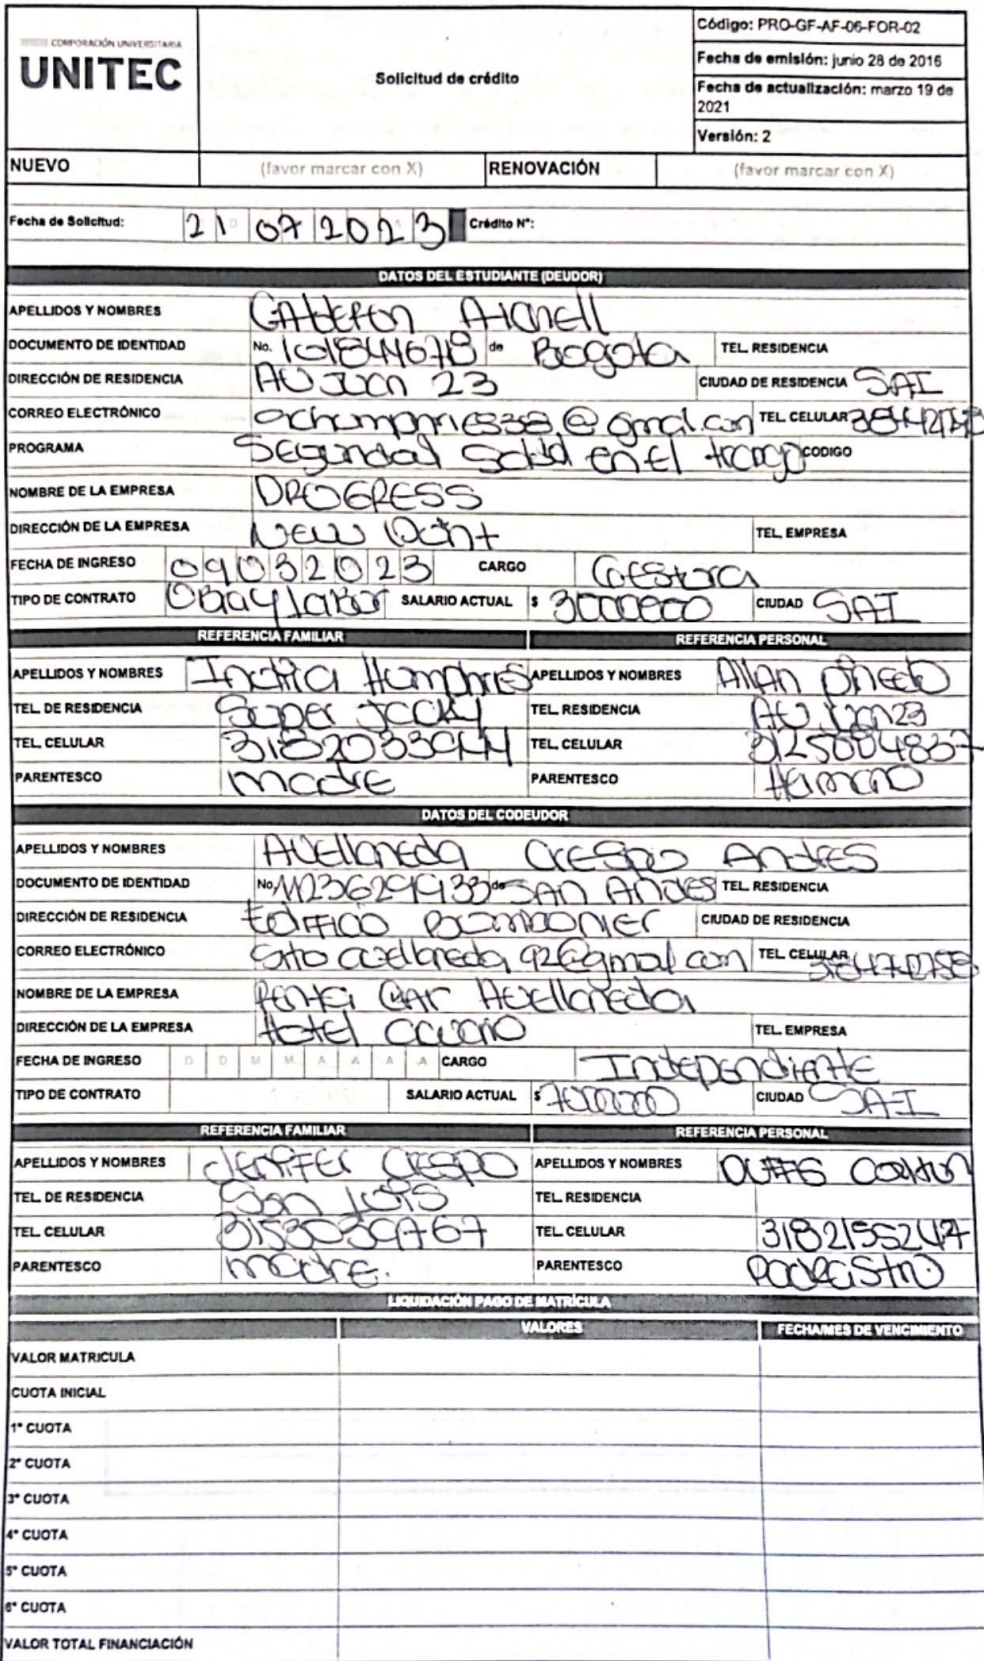 CORPORACIÓN UNIVERSITARIA
UNITEC
Solicitud de crédito
Código: PRO-GF-AF-06-FOR-02
Fecha de emisión: junio 28 de 2016
Fecha de actualización: marzo 19 de 2021
Versión: 2
NUEVO (favor marcar con X) RENOVACIÓN (favor marcar con X)
Fecha de Solicitud: 21 07 2023 Crédito N°:
DATOS DEL ESTUDIANTE (DEUDOR)
APELLIDOS Y NOMBRES Calderon
DOCUMENTO DE IDENTIDAD No. de Bogota TEL. RESIDENCIA
DIRECCIÓN DE RESIDENCIA AV Juan 23 CIUDAD DE RESIDENCIA SAI
CORREO ELECTRÓNICO TEL. CELULAR
PROGRAMA Seguridad Salud en El CODIGO
NOMBRE DE LA EMPRESA PROGRESS
DIRECCIÓN DE LA EMPRESA New Point TEL. EMPRESA
FECHA DE INGRESO 09032023 CARGO Gestora
TIPO DE CONTRATO Obra y labor SALARIO ACTUAL $ 3000000 CIUDAD SAI
REFERENCIA FAMILIAR REFERENCIA PERSONAL
APELLIDOS Y NOMBRES Indira Humphries APELLIDOS Y NOMBRES Allan Pinedo
TEL. DE RESIDENCIA Super TEL. RESIDENCIA AV Juan 23
TEL. CELULAR TEL. CELULAR 3125004837
PARENTESCO Madre PARENTESCO Hermano
DATOS DEL CODEUDOR
APELLIDOS Y NOMBRES Avellaneda Crespo Andres
DOCUMENTO DE IDENTIDAD No. 1123629933 de SAN Andres TEL. RESIDENCIA
DIRECCIÓN DE RESIDENCIA Edificio CIUDAD DE RESIDENCIA
CORREO ELECTRÓNICO avellaneda 92@gmail.com TEL. CELULAR
NOMBRE DE LA EMPRESA Renta Car Avellaneda
DIRECCIÓN DE LA EMPRESA Hotel TEL. EMPRESA
FECHA DE INGRESO D D M M A A A A CARGO Independiente
TIPO DE CONTRATO SALARIO ACTUAL $ 7000000 CIUDAD SAI
REFERENCIA FAMILIAR REFERENCIA PERSONAL
APELLIDOS Y NOMBRES Jenifer Crespo APELLIDOS Y NOMBRES
TEL. DE RESIDENCIA San Luis TEL. RESIDENCIA
TEL. CELULAR 3153039767 TEL. CELULAR 3182155247
PARENTESCO Madre. PARENTESCO Padrastro
LIQUIDACIÓN PAGO DE MATRÍCULA
VALORES FECHA/MES DE VENCIMIENTO
VALOR MATRICULA
CUOTA INICIAL
1° CUOTA
2° CUOTA
3° CUOTA
4° CUOTA
5° CUOTA
6° CUOTA
VALOR TOTAL FINANCIACIÓN